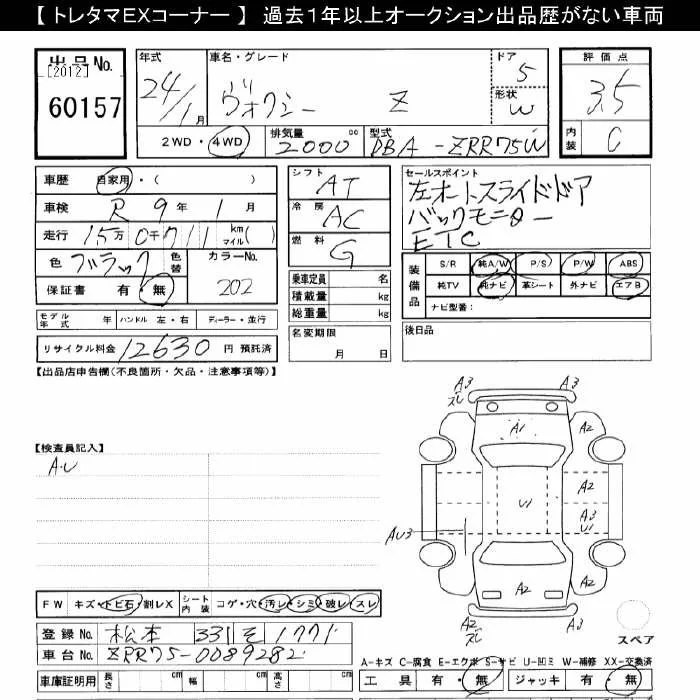 【 トレタマEXコーナー 】 過去１年以上オークション出品歴がない車両
出品No.
[2012]
60157
年式
24/1月
車名・グレード
ヴォクシー Z
ドア
5
形状
W
2WD・4WD
排気量
2000 cc
型式
DBA-ZRR75W
評価点
3.5
内装
C
車歴 自家用・( )
車検 R 9年 1月
走行 15万0千711 km マイル( )
色 ブラック 色替
カラーNo.
202
保証書 有・無
シフト AT
冷房 AC
燃料 G
乗車定員 名
積載量 kg
総重量 kg
セールスポイント
左オートスライドドア
バックモニター
ETC
装備品
S/R 純A/W P/S P/W ABS
純TV 純ナビ 革シート 外ナビ エアB
ナビ型番:
モデル年式 年 ハンドル 左・右 ディーラー・並行
リサイクル料金 12630 円 預託済
名変期限
月 日
後日品
【出品店申告欄(不良箇所・欠品・注意事項等)】
【検査員記入】
A・U
A3
スレ
A3
A1
A2
A2
A2
U1
A3
U1
AU3
A2
A2
A2
スレ
A3
スペア
FW キズ・トビ石・割レX
シート内装 コゲ・穴・汚レ・シミ・破レ・スレ
登録No. 松本 331 そ 1771
車台No. ZRR75-0089282
車庫証明用 長さ cm 幅 cm 高さ cm
A-キズ C-腐食 E-エクボ S-サビ U-凹ミ W-補修 XX-交換済
工具 有・無 ジャッキ 有・無